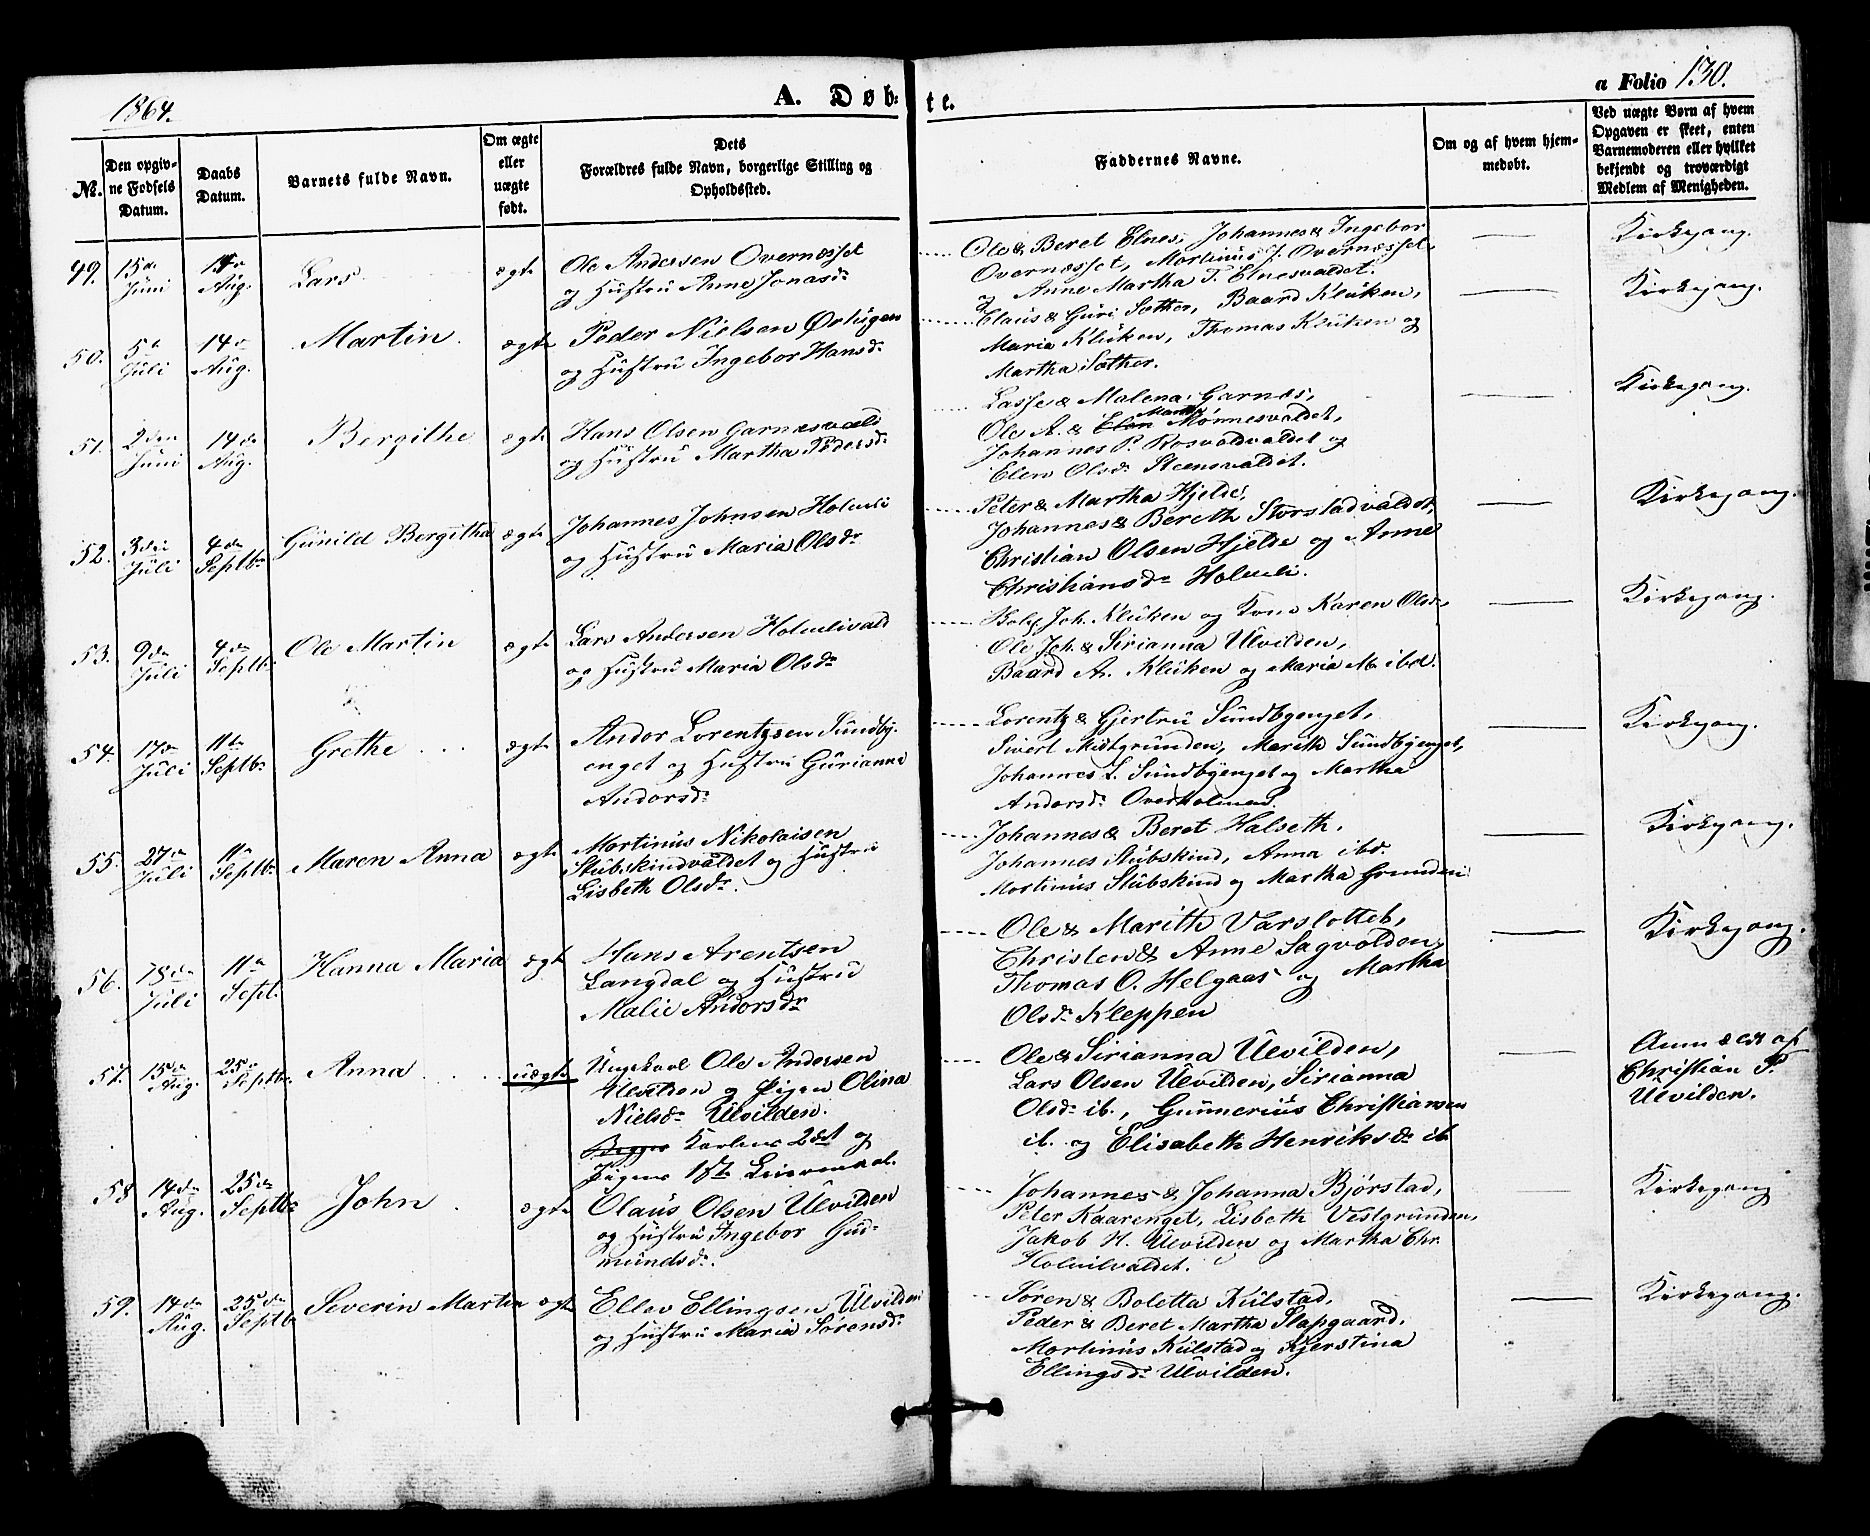 1864.
A. Døb-
te.
a Folio 130.
№.
Den opgiv-
ne Fødsels
Datum.
Daabs
Datum.
Barnets fulde Navn.
Om ægte
eller
uægte
født.
Dets
Forældres fulde Navn, borgerlige Stilling og
Opholdssted.
Faddernes Navne.
Om og af hvem hjem-
medøbt.
Ved uægte Børn af hvem
Opgaven er skeet, enten
Barnemoderen eller hvilket
bekjendt og troværdigt
Medlem af Menigheden.
49. 15de Juni
14de Aug.
Lars
ægte
Ole Andersen Overnæsset
og Hustru Anne Jonasdr
Ole & Beret Elnes, Johannes & Ingebor
Overnæsset, Mortinus J. Overnæsset
og Anne Martha T. Elnesvaldet.
Kirkegang.
50. 5te Juli
14de Aug.
Martin.
ægte
Peder Nielsen Østugen
og Hustru Ingebor Hansdr
Claus & Guri Sæther, Baard Klüken,
Maria Klüken, Thomas Klüken og
Martha Sæther.
Kirkegang.
51. 2den Juni
14de Aug.
Bergithe
ægte
Hans Olsen Garnæsvald
og Hustru Martha Pedersdr
Lasse & Malena Garnæs,
Ole A. & Martha Mønnesvaldet,
Johannes P. Rosvoldvaldet og
Elen Olsdr Steensvaldet.
Kirkegang.
52. 3die Juli
4de Septbr
Gunild Bergitha
ægte
Johannes Johnsen Holmli
og Hustru Maria Olsdr
Peter & Martha Hjelde,
Johannes & Bereth Storstadvaldet,
Christian Olsen Hjelde og Anne
Christiansdr Holmli.
Kirkegang.
53. 9de Juli
4de Septbr
Ole Martin
ægte
Lars Andersen Holmlivald
og Hustru Maria Olsdr
Joh. Klüken og Kone Karen Olsdr,
Ole Joh. & Sirianna Ulvilden,
Baard A. Klüken og Maria M. ibd.
Kirkegang.
54. 17de Juli
11te Septbr
Grethe
ægte
Andor Lorentzsen Sundby-
enget og Hustru Gurianna
Andorsdr
Lorentz & Gjertru Sundbyenget,
Sivert Midtgrunden, Marith Sundbyenget,
Johannes L. Sundbyenget og Martha
Andorsdr Overholmen.
Kirkegang.
55. 27de Juli
11te Septbr
Maren Anna
ægte
Mortinus Nikolaisen
Stubskindvaldet og Hustru
Lisbeth Olsdr.
Johannes & Beret Halseth,
Johannes Stubskind, Anna ibd.
Mortinus Stubskind og Martha Grunden
Kirkegang.
56. 18de Juli
11te Sept.
Hanna Maria
ægte
Hans Arentsen
Langdal og Hustru
Malie Andorsdr
Ole & Marith Varslottet,
Christen & Anne Sagvolden,
Thomas O. Helgaas og Martha
Olsdr Kleppen
Kirkegang.
57. 15de Aug.
25de Septbr
Anna
uægte
Ungekarl Ole Andersen
og Pigen Olina
Nielsdr Ulvilden.
Begges Karlens 2det og
Pigens 1ste Leiermaal.
Ole & Sirianna Ulvilden,
Lars Olsen Ulvilden, Sirianna
Olsdr ib., Gunnerius Christiansen
ib. og Elisabeth Henriksdr ib.
Anmeldt af
Christian P.
Ulvilden.
58 14de Aug.
25de Septbr
John
ægte
Olaus Olsen Ulvilden
og Hustru Ingebor Gud-
mundsdr.
Johannes & Johanna Bjørstad,
Peter Kaarenget, Lisbeth Vestgrunden,
Jakob H. Ulvilden og Martha Chr.
Holmlivaldet.
Kirkegang
59. 14de Aug.
25de Septbr
Severin Martin
ægte
Ellev Ellingsen Ulvilden
og Hustru Maria Sørensdr
Søren & Boletta Kulstad,
Peder & Beret Martha Slapgaard,
Mortinus Kulstad og Kjerstina
Ellingsdr Ulvilden.
Kirkegang.